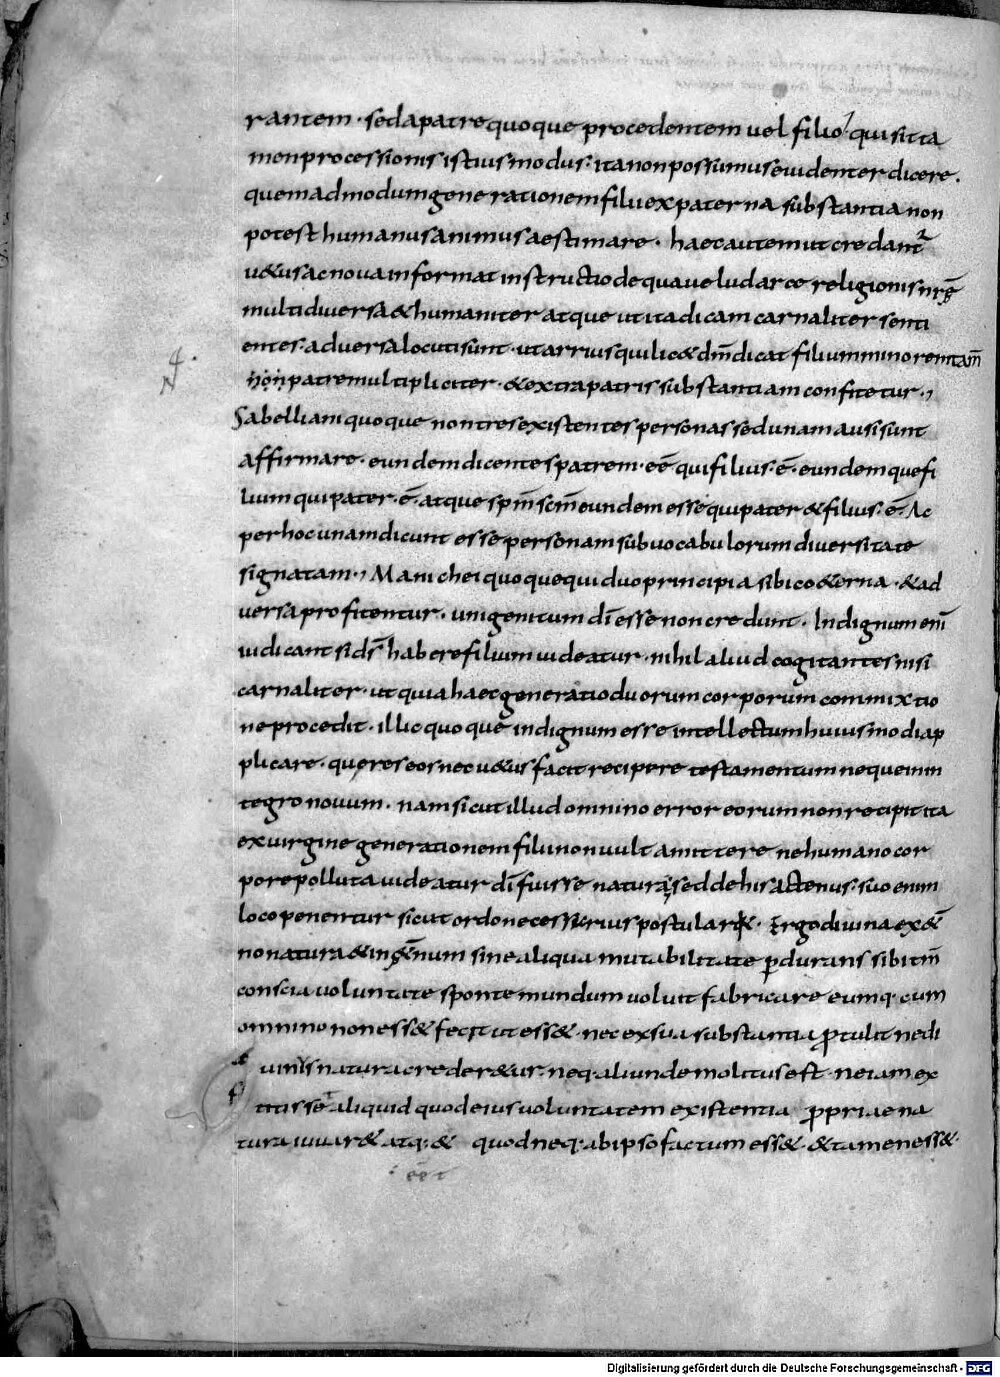 rantem · sed a patre quoque procedentem vel filio · qui sit ta
men processionis istius modus · ita non possumus evidenter dicere ·
quemadmodum generationem filii ex paterna substantia non
potest humanus animus aestimare · haec autem ut credant̄
u&us ac nova informat instructio de qua velud arce religionis nr̄ę
multi diversa & humaniter atque ut ita dicam carnaliter senti
entes · adversa locuti sunt · ut arrius qui lic& dm̄ dicat filium minorem tam̄
non patre multipliciter · & extra patris substantiam confitetur ·,
Sabelliani quoque non tres existentes personas sed unam ausi sunt
affirmare · eundem dicentes patrem · eē qui filius · ē · eundemque fi
lium qui pater · ē · atque spm̄ scm̄ eundem esse qui pater & filius · ē · Ac
per hoc unam dicunt esse personam sub vocabulorum diversitate
signatam ·, Manichei quoque qui duo principia sibi co&erna · & ad
versa profitentur · unigenitum dī esse non credunt · Indignum enī
iudicant si ds̄ habere filium videatur · nihil aliud cogitantes nisi
carnaliter · ut quia haec generatio duorum corporum commixtio
ne procedit · illic quoque indignum esse intellectum huius modi ap
plicare · que res eos nec u&us facit recipere testamentum neque in in
tegro novum · nam sicut illud omnino error eorum non recipit ita
ex virgine generationem filii non vult amittere ne humano cor
pore polluta videatur dī fuisse natura, sed de his actenus · suo enim
loco ponentur sicut ordo necessarius postularit · Ergo divina ex &
no natura & in &num sine aliqua mutabilitate pdurans sibi tm̄
conscia voluntate sponte mundum voluit fabricare eumq · cum
omnino non ess& fecit ut ess& · nec ex sua substantia ptulit ne di
vinis natura crederetur · neq · aliunde molitus est · ne iam ex
titisse aliquid quod eius voluntatem existentia ppriae na
tura iuvar& atq · & quod neq · ab ipso factum ess& · & tamen ess& ·
Digitalisierung gefördert durch die Deutsche Forschungsgemeinschaft - DFG